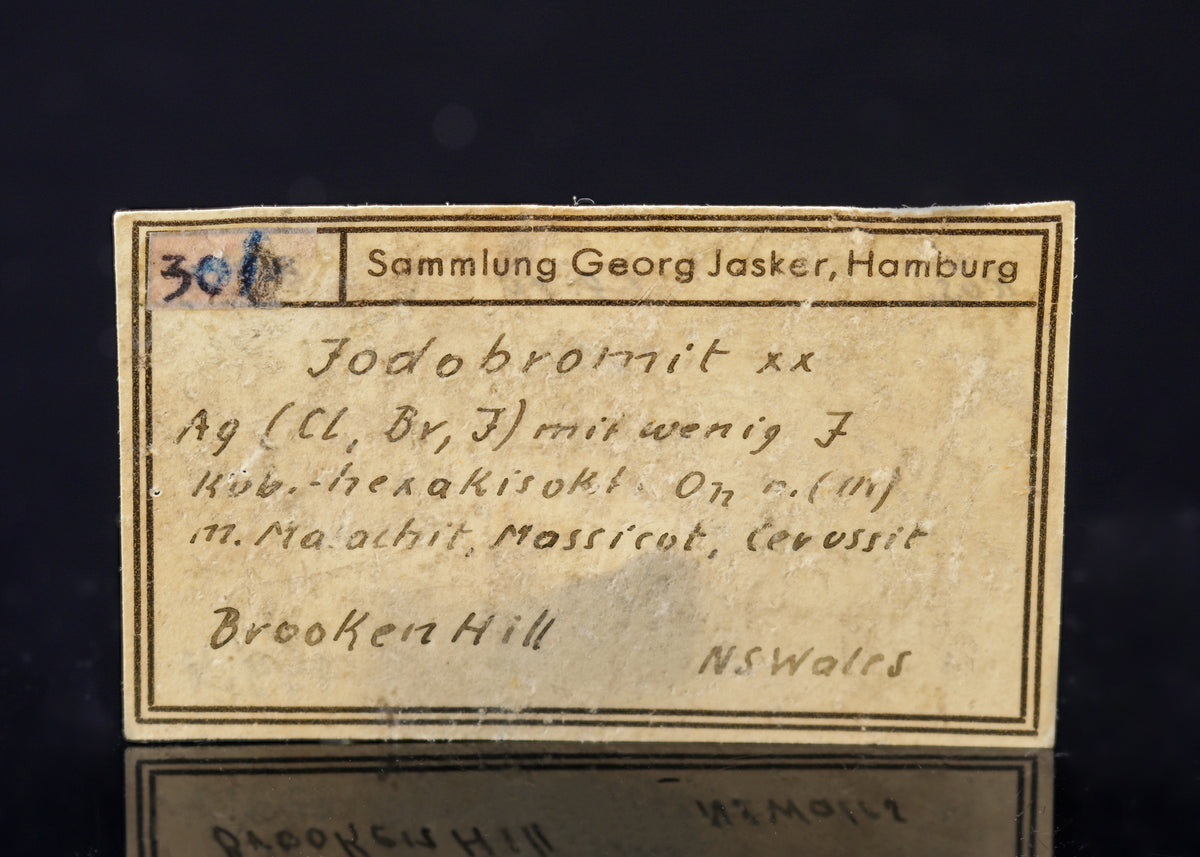 30
Sammlung Georg Jasker, Hamburg
Jodobromit xx
Ag (Cl, Br, J) mit wenig J
Kub.-hexakisokt. On n. (m)
m. Malachit, Massicot, Cerussit
Brooken Hill
NSWales